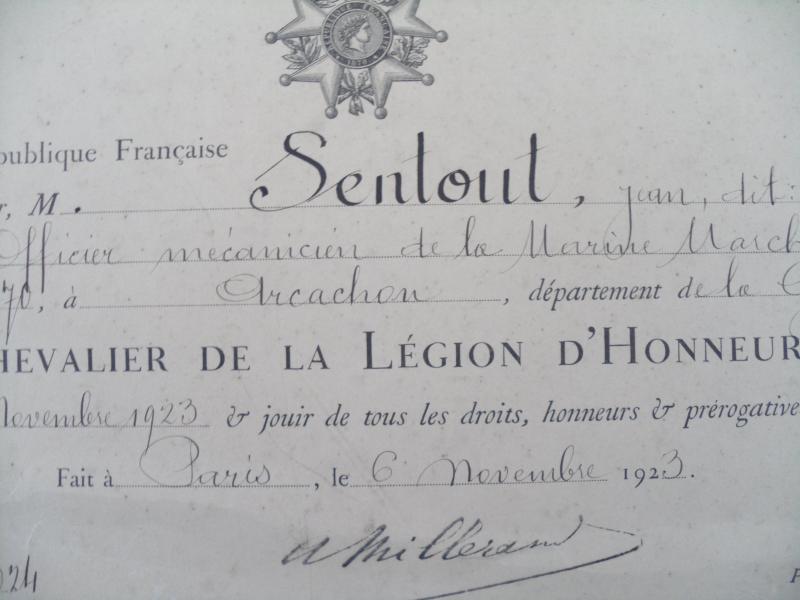 RÉPUBLIQUE FRANÇAISE
1870
publique Française
r, M. Sentout, jean, dit:
Officier mécanicien de la Marine March
70, à Arcachon, département de la G
HEVALIER DE LA LÉGION D'HONNEUR
Novembre 1923 & jouir de tous les droits, honneurs & prérogative
Fait à Paris, le 6 Novembre 1923.
A Millerand
924
P